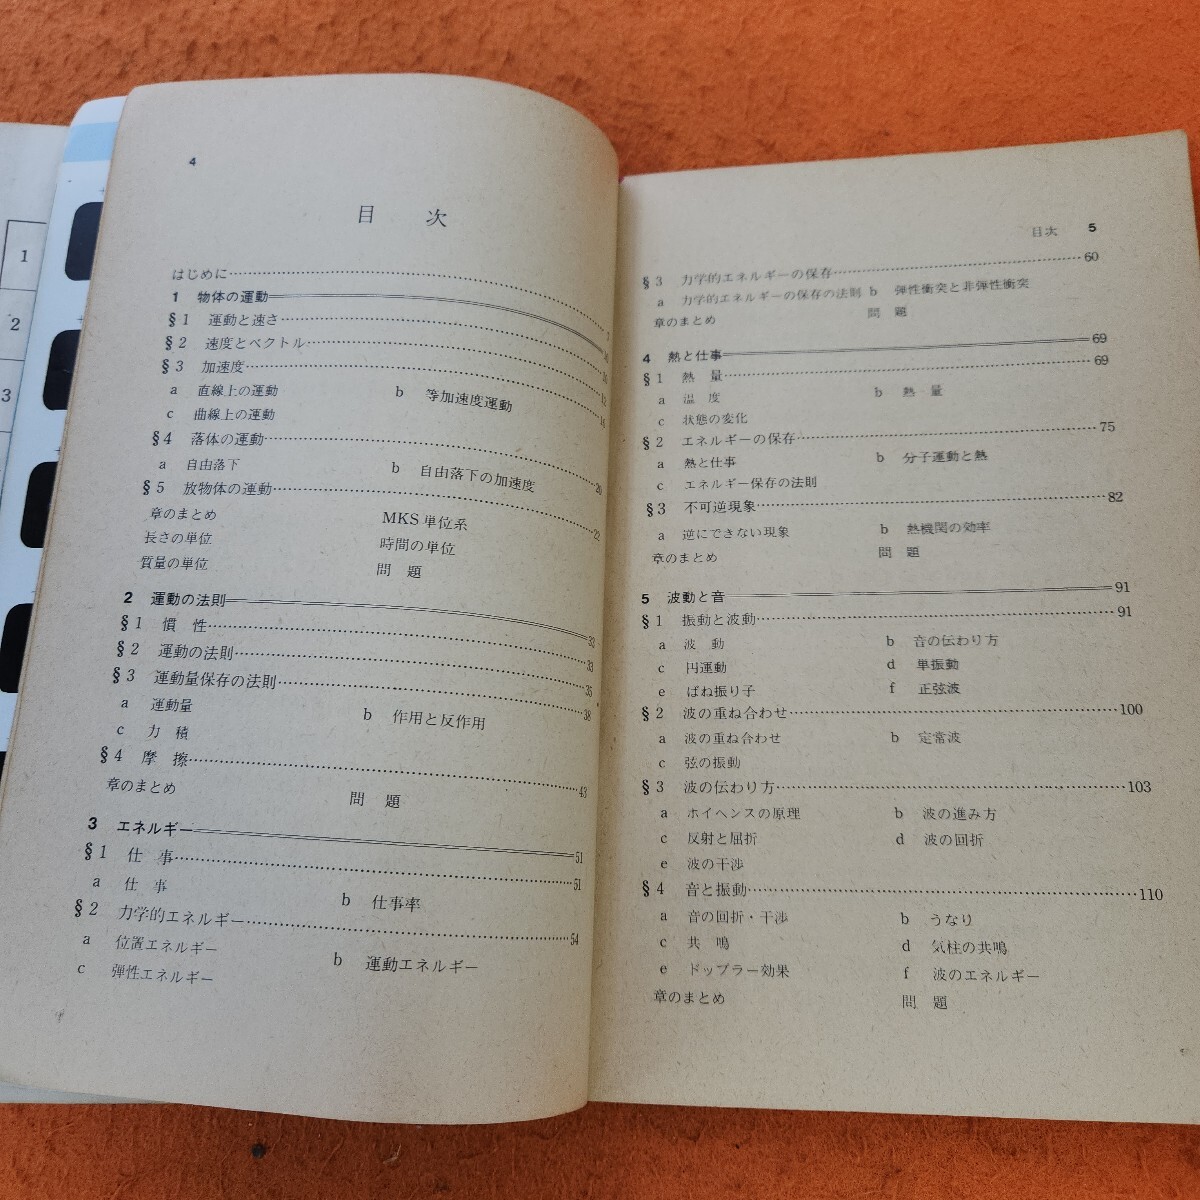 1
2
3
4
目 次
はじめに 7
1 物体の運動
§1 運動と速さ
§2 速度とベクトル
§3 加速度
a 直線上の運動 b 等加速度運動
c 曲線上の運動
§4 落体の運動 20
a 自由落下 b 自由落下の加速度
§5 放物体の運動 22
章のまとめ MKS単位系
長さの単位 時間の単位
質量の単位 問 題
2 運動の法則 33
§1 慣 性 33
§2 運動の法則 35
§3 運動量保存の法則 38
a 運動量 b 作用と反作用
c 力 積
§4 摩 擦 43
章のまとめ 問 題
3 エネルギー 51
§1 仕 事 51
a 仕 事 b 仕事率
§2 力学的エネルギー 54
a 位置エネルギー b 運動エネルギー
c 弾性エネルギー
目次 5
§3 力学的エネルギーの保存 60
a 力学的エネルギーの保存の法則 b 弾性衝突と非弾性衝突
章のまとめ 問 題
4 熱と仕事 69
§1 熱 量 69
a 温 度 b 熱 量
c 状態の変化
§2 エネルギーの保存 75
a 熱と仕事 b 分子運動と熱
c エネルギー保存の法則
§3 不可逆現象 82
a 逆にできない現象 b 熱機関の効率
章のまとめ 問 題
5 波動と音 91
§1 振動と波動 91
a 波 動 b 音の伝わり方
c 円運動 d 単振動
e ばね振り子 f 正弦波
§2 波の重ね合わせ 100
a 波の重ね合わせ b 定常波
c 弦の振動
§3 波の伝わり方 103
a ホイヘンスの原理 b 波の進み方
c 反射と屈折 d 波の回折
e 波の干渉
§4 音と振動 110
a 音の回折・干渉 b うなり
c 共 鳴 d 気柱の共鳴
e ドップラー効果 f 波のエネルギー
章のまとめ 問 題